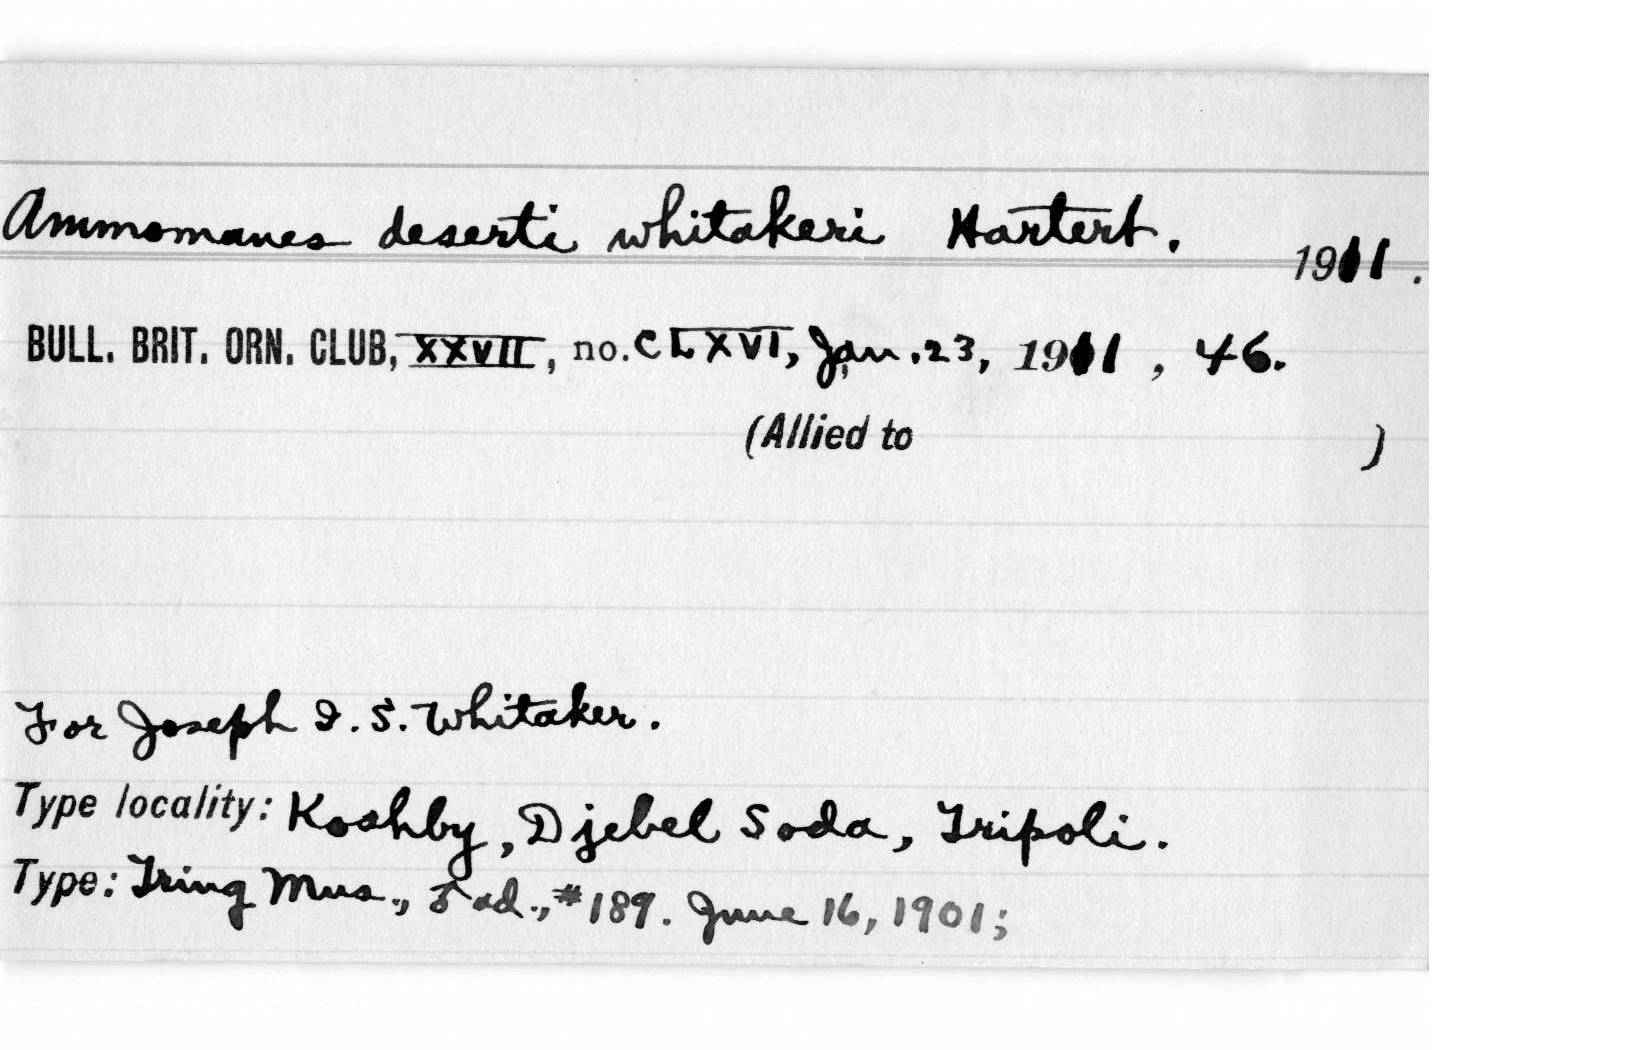 Ammomanes deserti whitakeri Hartert.
1911.
BULL. BRIT. ORN. CLUB, XXVII, no. CLXVI, Jan. 23, 1911, 46.
(Allied to )
For Joseph I. S. Whitaker.
Type locality: Koshby, Djebel Soda, Tripoli.
Type: Tring Mus., ♂ ad., #189. June 16, 1901;